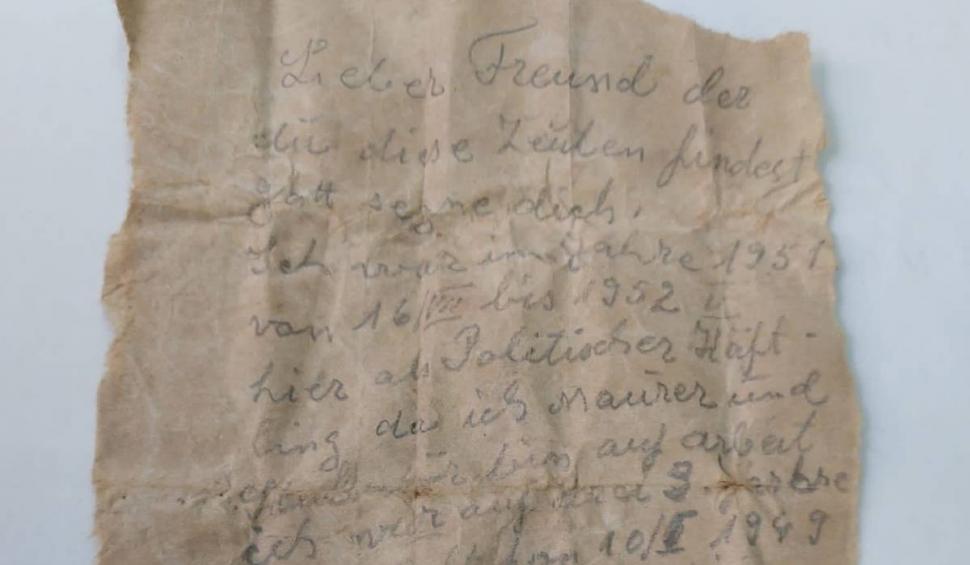 Lieber Freund der
du diese Zeulen findest
gott segne dich.
Ich war im Jahre 1951
von 16/III bis 1952 II
hier als Politischer Häft-
ling da ich Maurer und
bin auf arbeit
ich war auf 3
10/I 1949